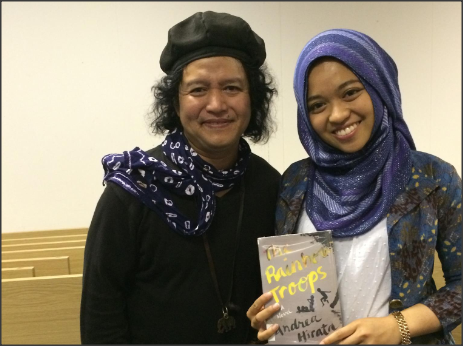 The
Rainbow
Troops
A
Novel
Andrea
Hirata